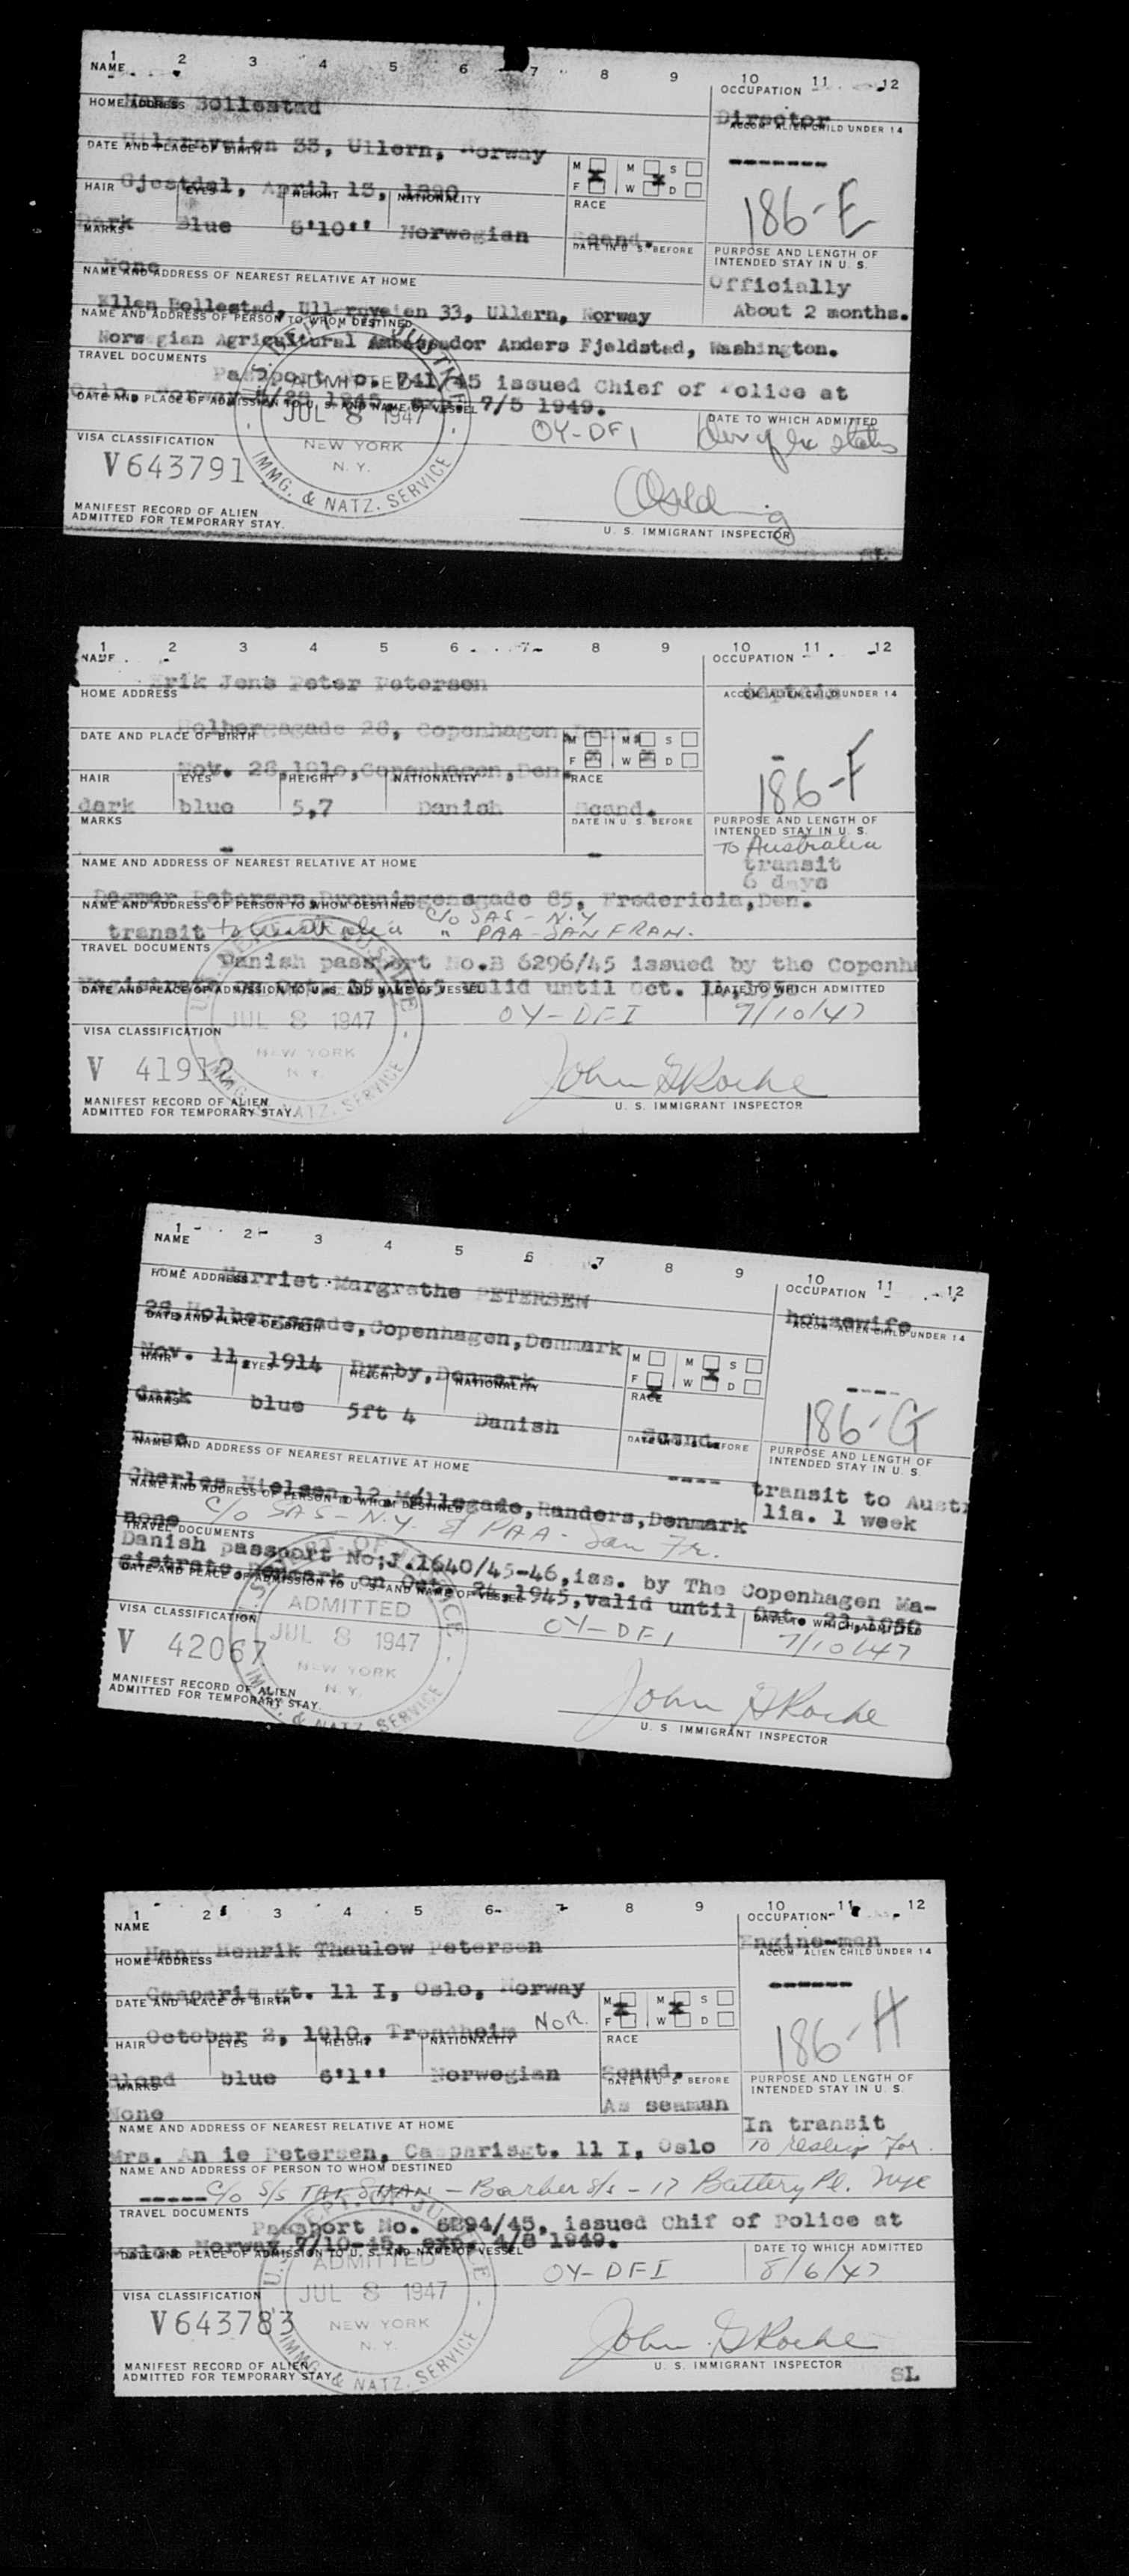 1 2 3 4 5 6 7 8 9 10 11 12
NAME
OCCUPATION
Bollestad
Director
HOME ADDRESS
ACCOM. ALIEN CHILD UNDER 14
33, Ullern, Norway
-------
DATE AND PLACE OF BIRTH
M M S
F W D
Gjestdal, April 15, 1890
186-E
HAIR EYES HEIGHT NATIONALITY RACE
Dark Blue 5'10'' Norwegian Scand.
MARKS
DATE IN U. S. BEFORE
PURPOSE AND LENGTH OF
INTENDED STAY IN U. S.
None
NAME AND ADDRESS OF NEAREST RELATIVE AT HOME
Officially
Ellen Bollestad, Ullernveien 33, Ullern, Norway
About 2 months.
NAME AND ADDRESS OF PERSON TO WHOM DESTINED
Norwegian Agricultural Ambassador Anders Fjeldstad, Washington.
TRAVEL DOCUMENTS
Passport No. 741/45 issued Chief of Police at
Oslo, Norway 1945, exp. 7/5 1949.
DATE AND PLACE OF ADMISSION TO U. S. AND NAME OF VESSEL
DATE TO WHICH ADMITTED
ADMITTED
JUL 8 1947
NEW YORK
N. Y.
IMMG. & NATZ. SERVICE
OY-DFI
status
VISA CLASSIFICATION
V643791
MANIFEST RECORD OF ALIEN
ADMITTED FOR TEMPORARY STAY.
U. S. IMMIGRANT INSPECTOR
SL
1 2 3 4 5 6 7 8 9 10 11 12
NAME
OCCUPATION
Erik Jens Peter Petersen
Captain
HOME ADDRESS
ACCOM. ALIEN CHILD UNDER 14
Holbergsgade 26, Copenhagen, Den.
DATE AND PLACE OF BIRTH
M M S
F W D
-
Nov. 26,1910,Copenhagen,Den.
186-F
HAIR EYES HEIGHT NATIONALITY RACE
dark blue 5,7 Danish Scand.
MARKS
DATE IN U. S. BEFORE
PURPOSE AND LENGTH OF
INTENDED STAY IN U. S.
To Australia
transit
6 days
NAME AND ADDRESS OF NEAREST RELATIVE AT HOME
Dagmar Petersen,Dronningensgade 85, Fredericia,Den.
NAME AND ADDRESS OF PERSON TO WHOM DESTINED
c/o SAS - N.Y
transit to Australia " PAA - SAN FRAN.
TRAVEL DOCUMENTS
Danish passport No.B 6296/45 issued by the Copenh
valid until Oct.
DATE AND PLACE OF ADMISSION TO U. S. AND NAME OF VESSEL
DATE TO WHICH ADMITTED
JUL 8 1947
NEW YORK
N. Y.
IMMG. & NATZ. SERVICE
OY-DFI
7/10/47
VISA CLASSIFICATION
V 41912
John G Roche
MANIFEST RECORD OF ALIEN
ADMITTED FOR TEMPORARY STAY.
U. S. IMMIGRANT INSPECTOR
1 2 3 4 5 6 7 8 9 10 11 12
NAME
OCCUPATION
Harriet Margrethe PETERSEN
housewife
HOME ADDRESS
ACCOM. ALIEN CHILD UNDER 14
26,Holbergsgade,Copenhagen,Denmark
DATE AND PLACE OF BIRTH
M M S
F W D
----
Nov. 11, 1914 Dyrby,Denmark
186-G
HAIR EYES HEIGHT NATIONALITY RACE
dark blue 5ft 4 Danish Scand.
MARKS
DATE IN U. S. BEFORE
PURPOSE AND LENGTH OF
INTENDED STAY IN U. S.
none
----
transit to Austr
lia. 1 week
NAME AND ADDRESS OF NEAREST RELATIVE AT HOME
Charles Nielsen,12 Møllegade,Randers,Denmark
NAME AND ADDRESS OF PERSON TO WHOM DESTINED
none c/o SAS - N.Y. & PAA - San Fr.
TRAVEL DOCUMENTS
Danish passport No;J.1640/45-46,iss. by The Copenhagen Ma-
gistrate,Denmark on Oct. 24,1945,valid until Oct. 23,1950
DATE AND PLACE OF ADMISSION TO U. S. AND NAME OF VESSEL
DATE TO WHICH ADMITTED
ADMITTED
JUL 8 1947
NEW YORK
N. Y.
IMMG. & NATZ. SERVICE
OY-DFI
7/10/47
VISA CLASSIFICATION
V 42067
John G Roche
MANIFEST RECORD OF ALIEN
ADMITTED FOR TEMPORARY STAY.
U. S. IMMIGRANT INSPECTOR
1 2 3 4 5 6 7 8 9 10 11 12
NAME
OCCUPATION
Hans Henrik Thaulow Petersen
Engine-man
HOME ADDRESS
ACCOM. ALIEN CHILD UNDER 14
Casparis gt. 11 I, Oslo, Norway
------
DATE AND PLACE OF BIRTH
M M S
F W D
October 2, 1910, Trondheim NOR.
186-H
HAIR EYES HEIGHT NATIONALITY RACE
Bland blue 6'1'' Norwegian Scand.
MARKS
DATE IN U. S. BEFORE
PURPOSE AND LENGTH OF
INTENDED STAY IN U. S.
None
As seaman
In transit
To reship for.
NAME AND ADDRESS OF NEAREST RELATIVE AT HOME
Mrs. An ie Petersen, Casparisgt. 11 I, Oslo
NAME AND ADDRESS OF PERSON TO WHOM DESTINED
----- c/o S/S TAI SHAN - Barber S/S - 17 Battery Pl. Nyc
TRAVEL DOCUMENTS
Passport No. 6894/45, issued Chif of Police at
Oslo, Norway 7/10-45, exp. 4/8 1949.
DATE AND PLACE OF ADMISSION TO U. S. AND NAME OF VESSEL
DATE TO WHICH ADMITTED
ADMITTED
JUL 8 1947
NEW YORK
N. Y.
IMMG. & NATZ. SERVICE
OY-DFI
8/6/47
VISA CLASSIFICATION
V643783
John G Roche
MANIFEST RECORD OF ALIEN
ADMITTED FOR TEMPORARY STAY.
U. S. IMMIGRANT INSPECTOR
SL